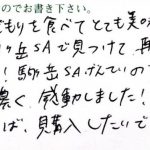 のでお書き下さい。
どもりを食べてとても美味
ヶ岳SAで見つけて再
！駒ヶ岳SAげんていの
濃く、感動しました！
ば、再購入したいで